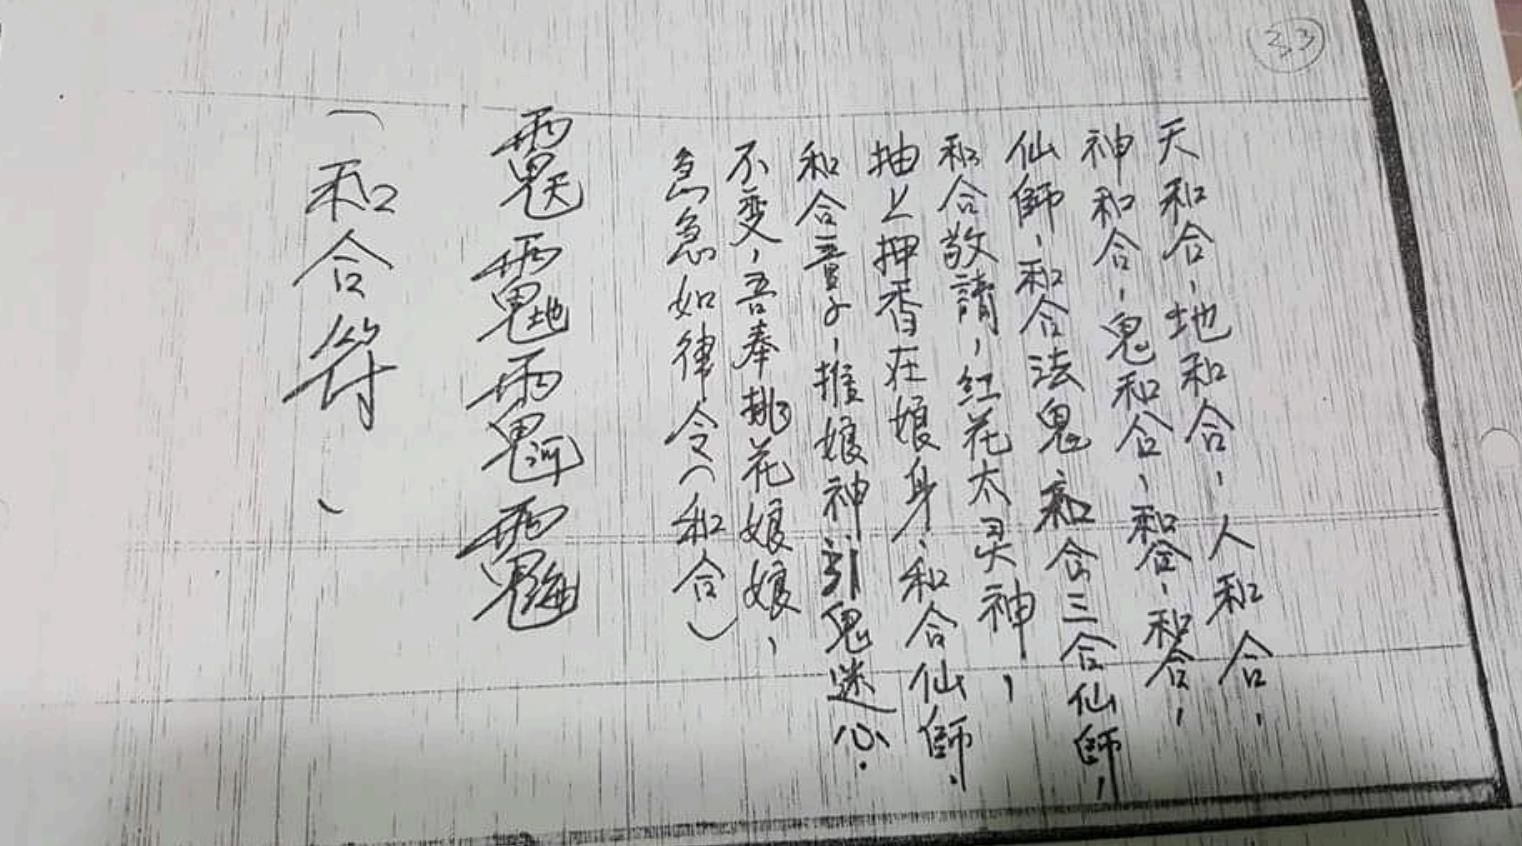 33
天和合，地和合，人和合，
神和合，鬼和合，和合，和合，
仙師，和合法鬼，和合三合仙師，
和合敬請，紅花太灵神，
抽上押香在娘身，和合仙師，
和合童子，推娘神引鬼迷心。
不変，吾奉桃花娘娘，
急急如律令（和合）
（和合符）